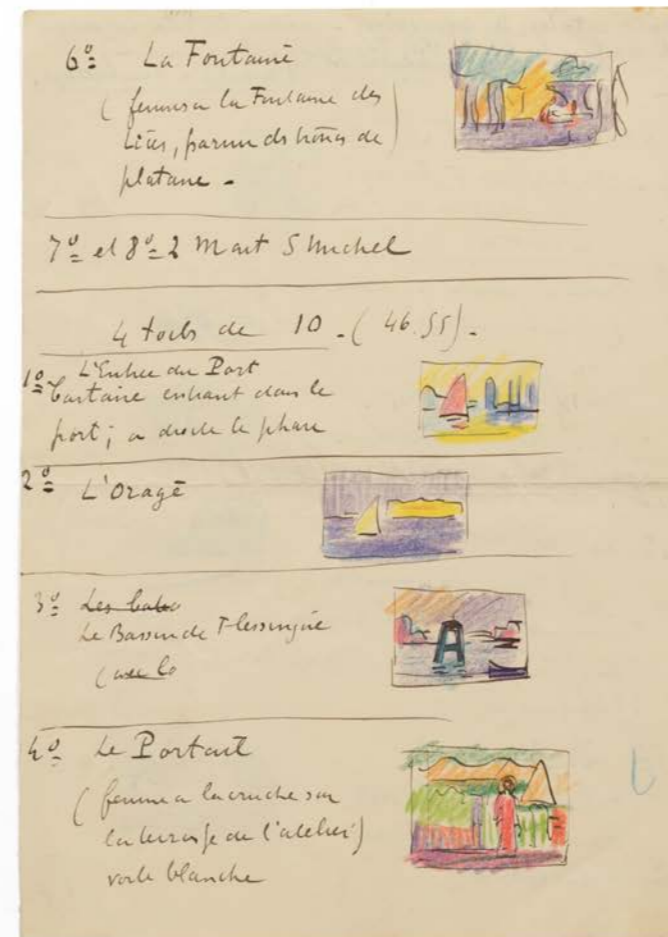 6º La Fontaine
(femmes a la Fontaine des
Lices, parmi ds troncs de
platane -
7º et 8º 2 Mont S Michel
4 toiles de 10 - (46.55) -
1º L'Entree du Port
Tartane entrant dans le
port; a droite le phare
2º L'Orage
3º
Le Bassin de Flessingue
(avec la
4º Le Portait
(femme a la cruche sur
la terrasse de l'atelier)
voile blanche